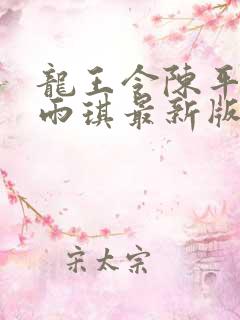 龍王令陳平
雨琪最新版
宋太宗